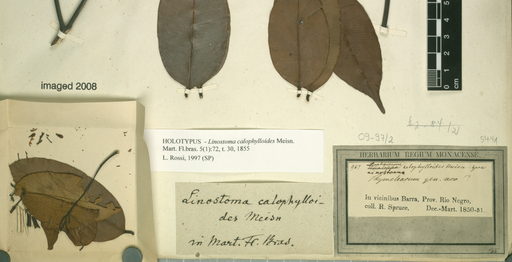 imaged 2008
cm
HOLOTYPUS - Linostoma calophylloides Meisn.
Mart. Fl.bras. 5(1):72, t. 30, 1855
L. Rossi, 1997 (SP)
Linostoma calophylloi-
des Meisn
in Mart. Fl. Bras.
HERBARIUM REGIUM MONACENSE.
calophylloides Meisn
linostoma
gen. nov.
In vicinibus Barra, Prov. Rio Negro,
coll. R. Spruce, Dec.-Mart. 1850-51.